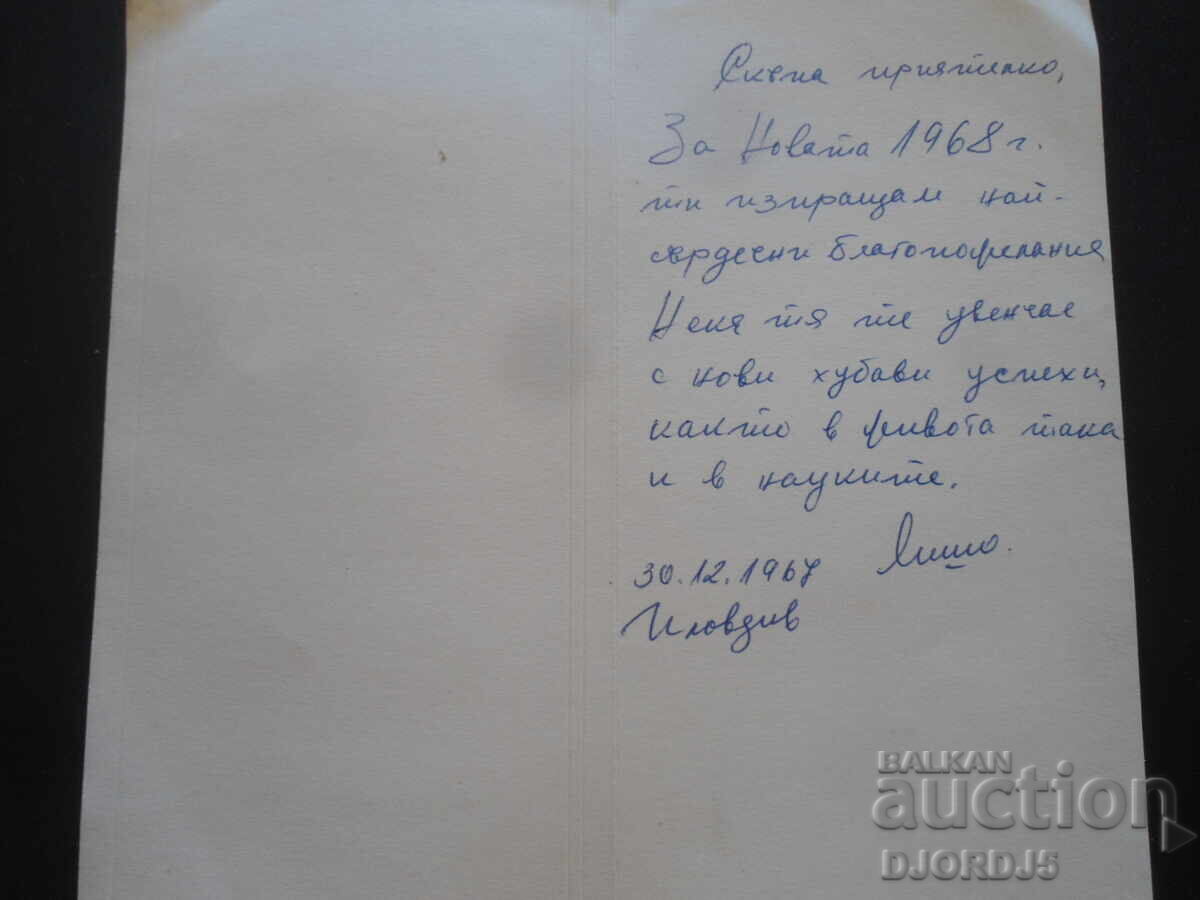 Скъпа приятелко,
За Новата 1968 г.
ти изпращам най-
сърдечни благопожелания
Нека тя те увенчае
с нови хубави успехи,
както в живота така
и в науките.
30.12.1967
Пловдив
BALKAN
auction
DJORDJ5